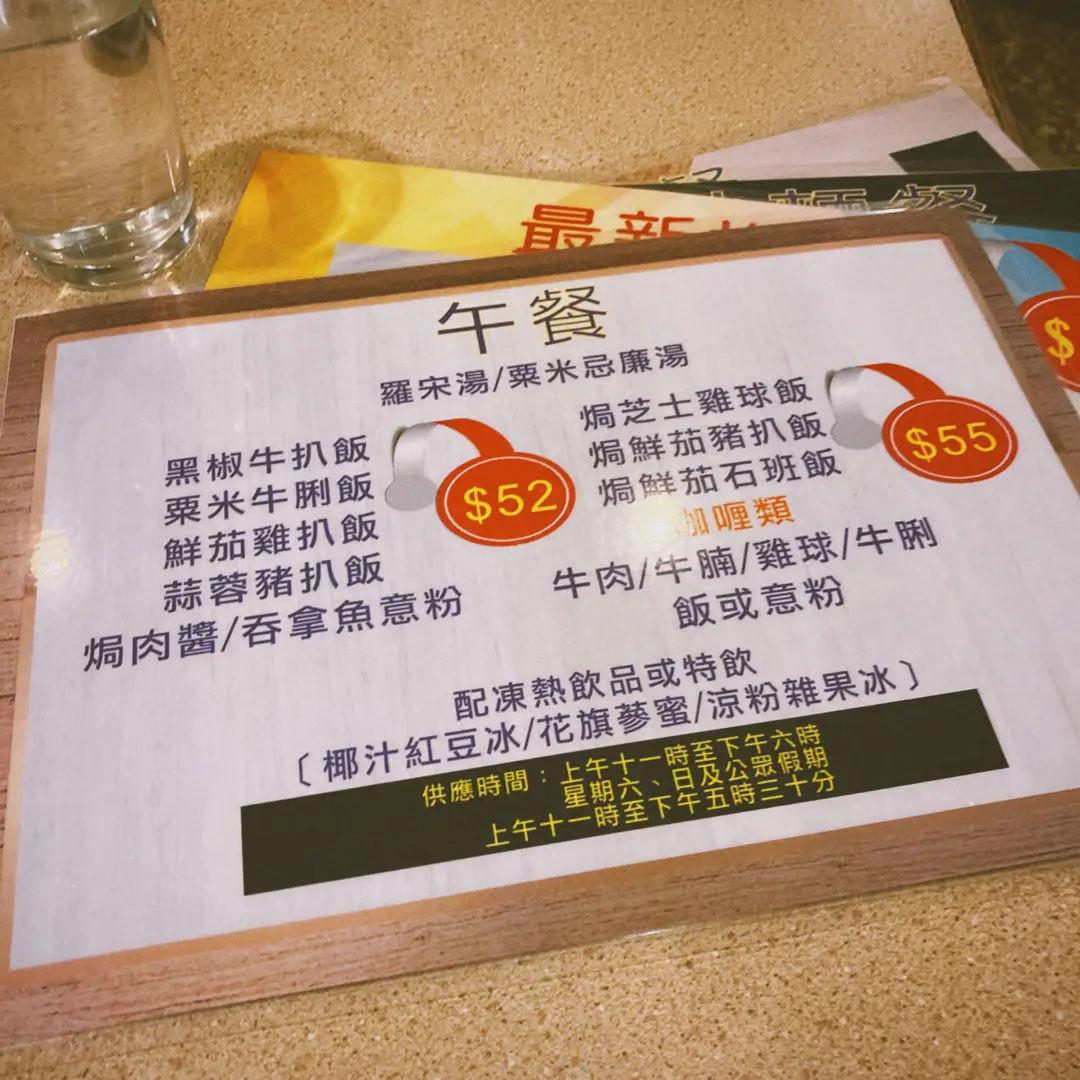 最新
餐
$
午餐
羅宋湯/粟米忌廉湯
黑椒牛扒飯
粟米牛脷飯
鮮茄雞扒飯
蒜蓉豬扒飯
焗肉醬/吞拿魚意粉
$52
焗芝士雞球飯
焗鮮茄豬扒飯
焗鮮茄石班飯
$55
咖喱類
牛肉/牛腩/雞球/牛脷
飯或意粉
配凍熱飲品或特飲
〔椰汁紅豆冰/花旗蔘蜜/涼粉雜果冰〕
供應時間：上午十一時至下午六時
星期六、日及公眾假期
上午十一時至下午五時三十分